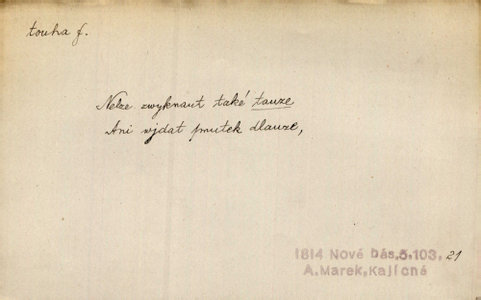 touha f.
Nelze zwyknaut také tauze
Ani wjdat smutek dlauze,
1814 Nové bás.5.103. 21
A.Marek, Kajícná